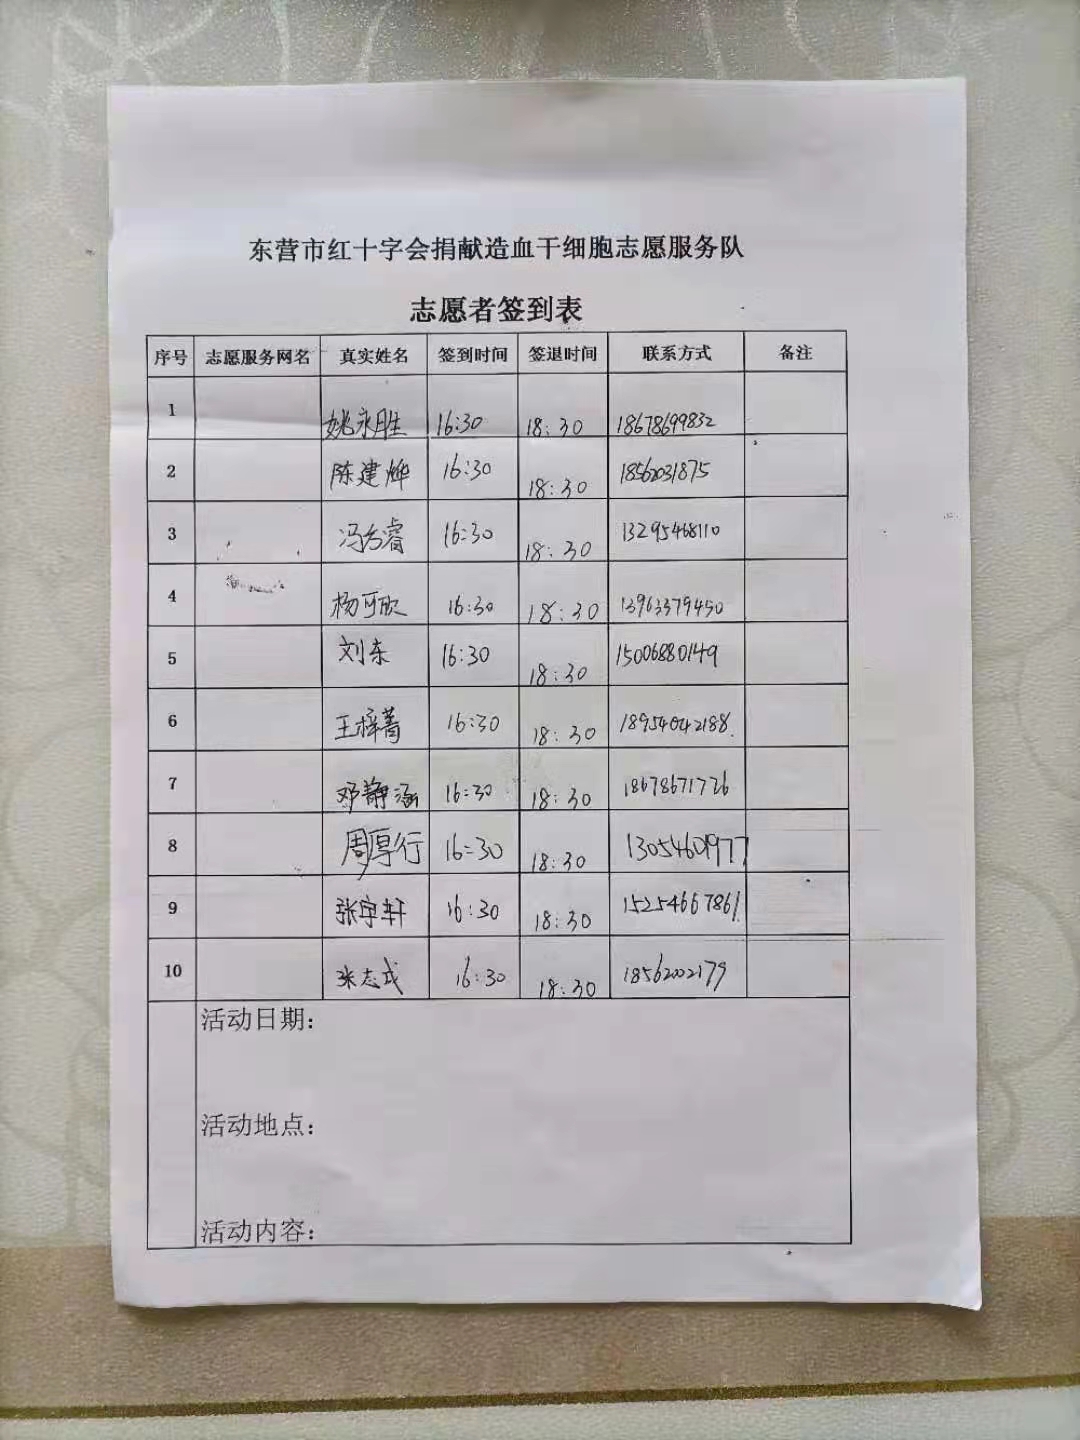 东营市红十字会捐献造血干细胞志愿服务队
志愿者签到表
序号 志愿服务网名 真实姓名 签到时间 签退时间 联系方式 备注
1 姚永胜 16:30 18:30 18678699832
2 陈建烨 16:30 18:30 18562031875
3 冯方睿 16:30 18:30 13295468110
4 杨可欣 16:30 18:30 13963379450
5 刘东 16:30 18:30 15006880149
6 王梓菁 16:30 18:30 18954042188
7 邓静涵 16:30 18:30 18678671726
8 周厚行 16:30 18:30 13054601977
9 张宇轩 16:30 18:30 15254667861
10 张志成 16:30 18:30 18562002179
活动日期：
活动地点：
活动内容：